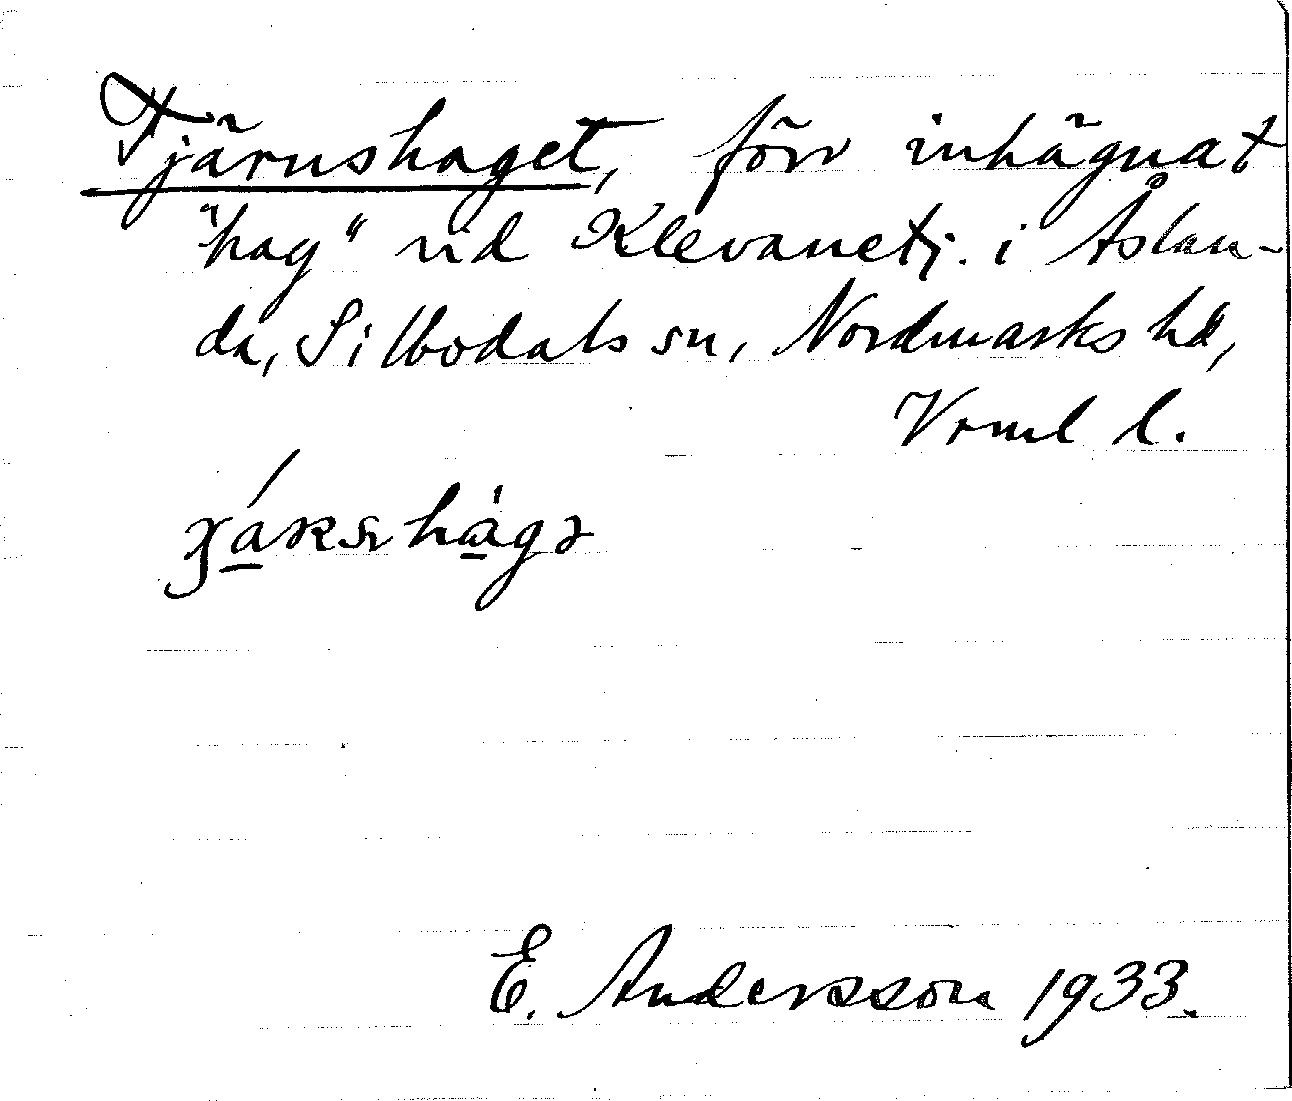 Tjärnshaget, förr inhägnat
"hag" vid Klevanetj. i Åslan-
da, Silbodals sn, Nordmarks hd,
Vrml l.
E. Andersson 1933.